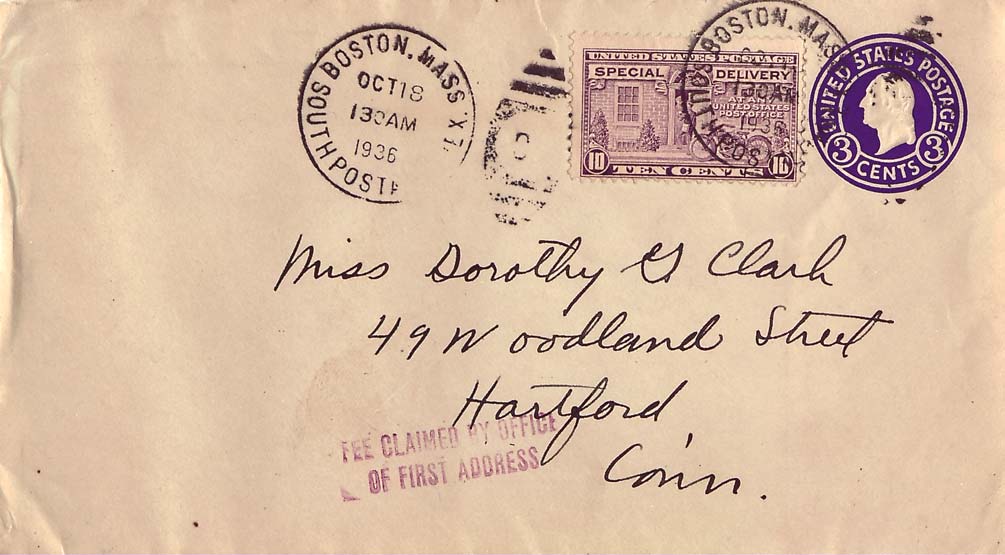 BOSTON, MASS
OCT 18
130 AM
1936
SOUTH POST
UNITED STATES POSTAGE
SPECIAL DELIVERY
AT ANY
UNITED STATES
POST OFFICE
10 TEN CENTS 10
BOSTON, MASS
130 AM
1936
SOUTH POS
UNITED STATES POSTAGE
3 CENTS 3
Miss Dorothy G Clark
49 Woodland Street
Hartford,
Conn.
FEE CLAIMED BY OFFICE
OF FIRST ADDRESS